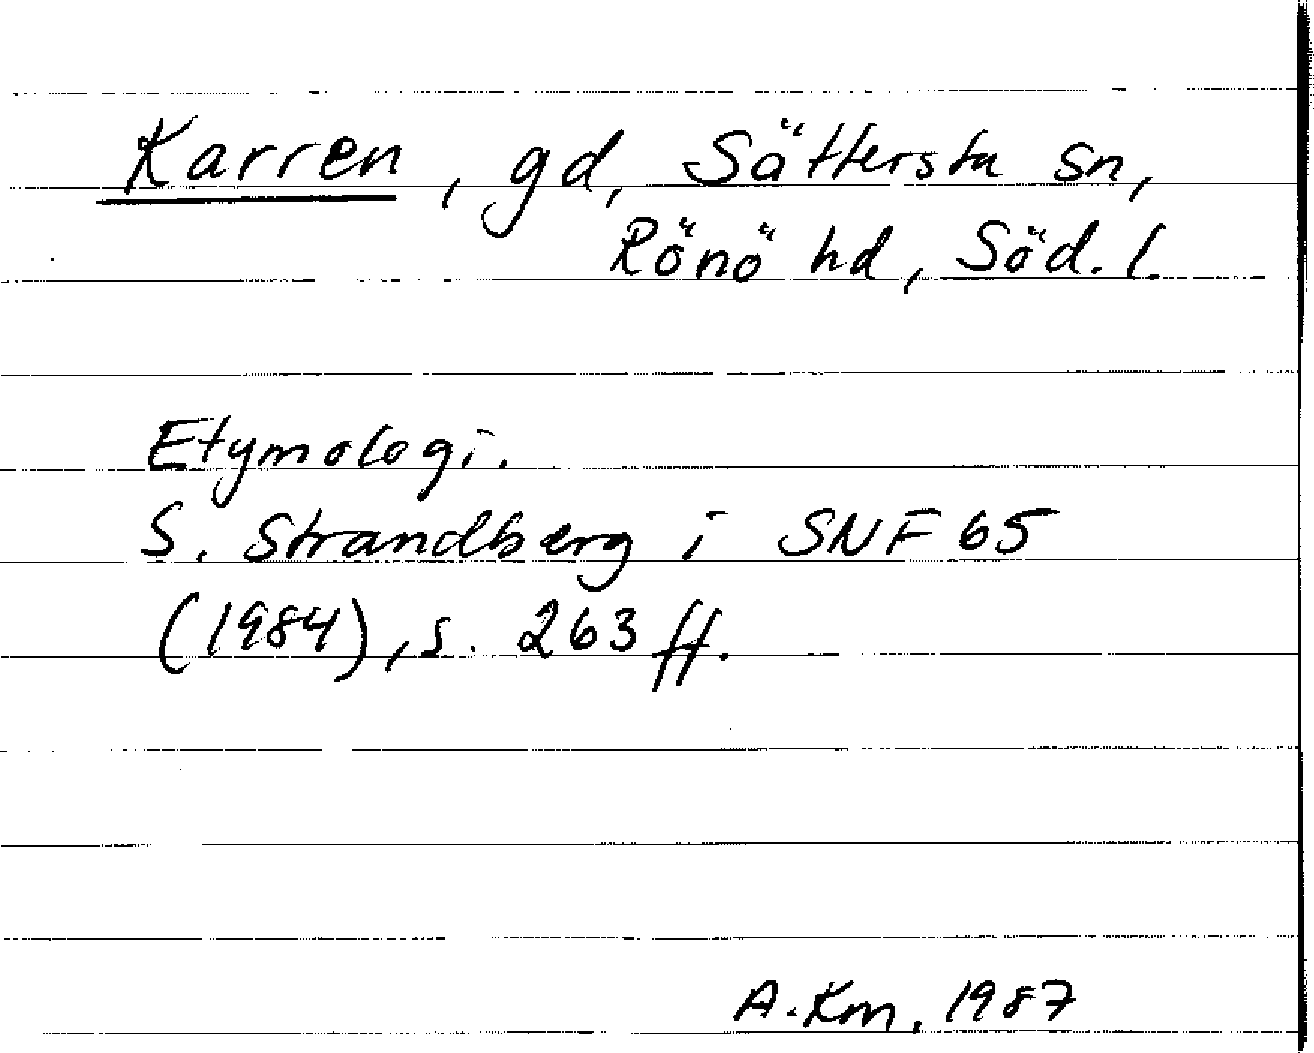 Karren, gd, Sättersta sn,
Rönö hd, Söd. l.
Etymologi.
S. Strandberg i SNF 65
(1984), s. 263 ff.
A. Km, 1987